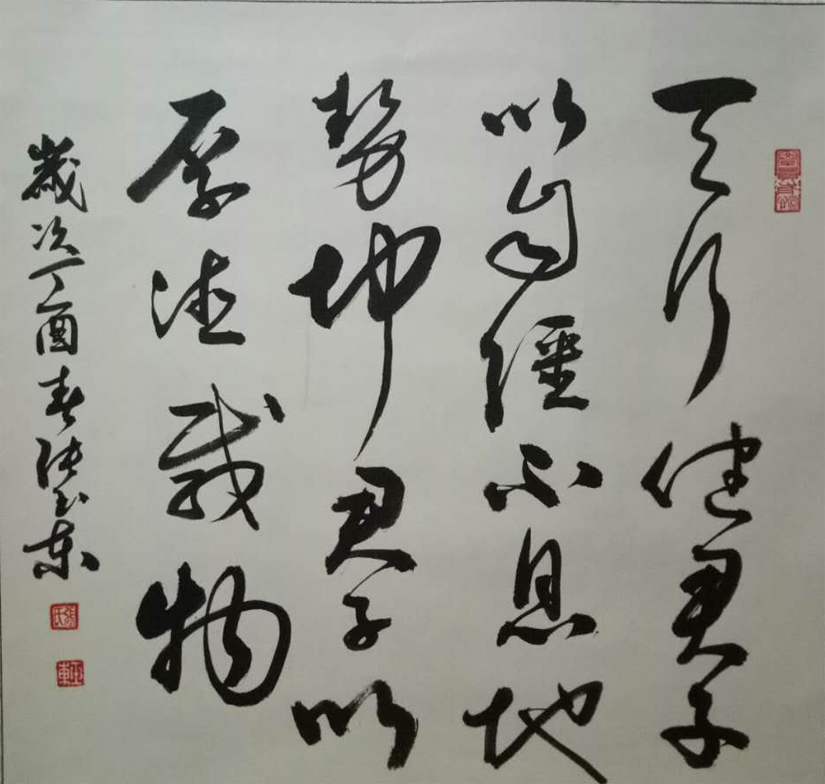 天行健君子
以自强不息地
势坤君子以
厚德载物
岁次丁酉春张玉东